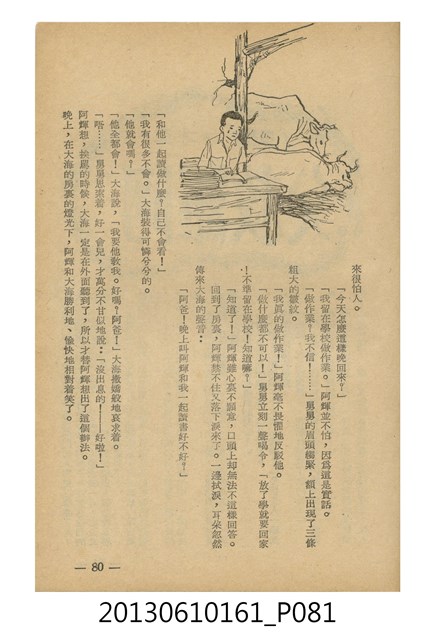 來很怕人。
「今天怎麼這樣晚回來？」
「我留在學校做作業。」阿輝並不怕，因爲這是實話。
「做作業？我不信！……」舅舅的眉頭綳緊，額上出現了三條
粗大的皺紋。
「我眞的做作業！」阿輝毫不畏懼地反駁他。
「做什麼都不可以！」舅舅立刻一聲喝令，「放了學就要回家
！不準留在學校！知道嘛？」
「知道了！」阿輝雖心裏不願意，口頭上却無法不這樣回答。
回到了房裏，阿輝禁不住又落下淚來了。一邊拭淚，耳朶忽然
傳來大海的聲音：
「阿爸！晚上叫阿輝和我一起讀書好不好？」
「和他一起讀做什麼？自己不會看！」
「我有很多不會。」大海裝得可憐兮兮的。
「他就會嗎？」
「他全都會！」大海說，「我要他敎我。好嗎？阿爸！」大海撒嬌般地哀求着。
「唔……」舅舅思索着，好一會兒，才萬分不甘似地說：「沒出息的！——好啦！」
阿輝想，挨罵的時候，大海一定是在外面聽到了，所以才替阿輝想出了這個辦法。
晚上，在大海的房裏的燈光下，阿輝和大海勝利地、愉快地相對着笑了。
— 80 —
20130610161_P081